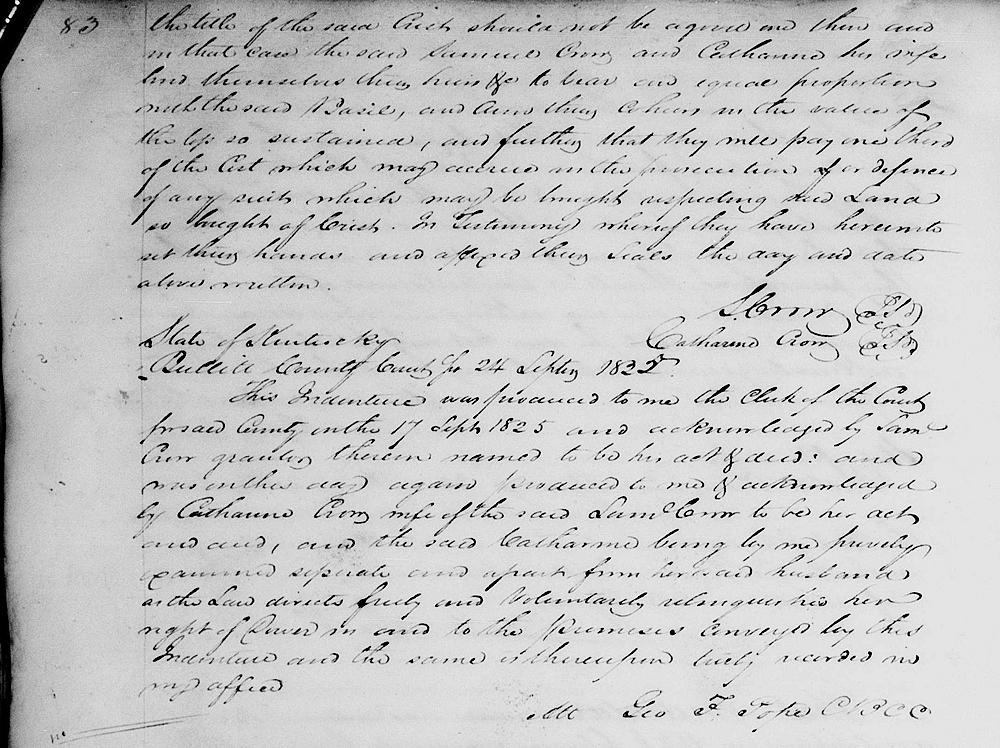 83 the title of the said Crist should not be a good one then and
in that case the said Samuel Crow and Catharine his wife
bind themselves their heirs &c to bear an equal proportion
with the said Basil, and Ann their heirs in the value of
the loss so sustained, and further that they will pay one third
of the Cost which may accrue in the prosecution or defence
of any suit which may be brought respecting said Land
so bought of Crist. In Testimony whereof they have hereunto
set their hands and affixed their Seals the day and date
above written.
S. Crow
Catharine Crow
State of Kentucky
Bullitt County Court 24 Septem 1825
This Indenture was produced to me the Clerk of the Court
for said County on the 17 Sept 1825 and acknowledged by Sam
Crow grantor therein named to be his act & deed: and
was on this day again produced to me & acknowledged
by Catharine Crow wife of the said Saml Crow to be her act
and deed, and the said Catharine being by me privily
examined seperate and apart from her said husband
as the Law directs freely and Voluntarily relinquished her
right of Dower in and to the premises Conveyed by this
Indenture and the same is thereupon truly recorded in
my office
Att Geo F. Pope C B C C